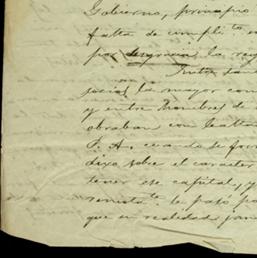 Gobierno, principio
falta de cumpli.to
por desgracia la
Entre tan
social la mayor con
y entre hombres de
obraban con
S. A. cuando se
dixo sobre el caracter
tener ese capital, y
le pasó
que en realidad